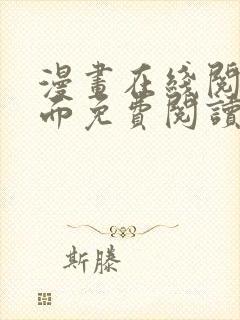 漫畫在綫閱
而免費閱讀
斯滕